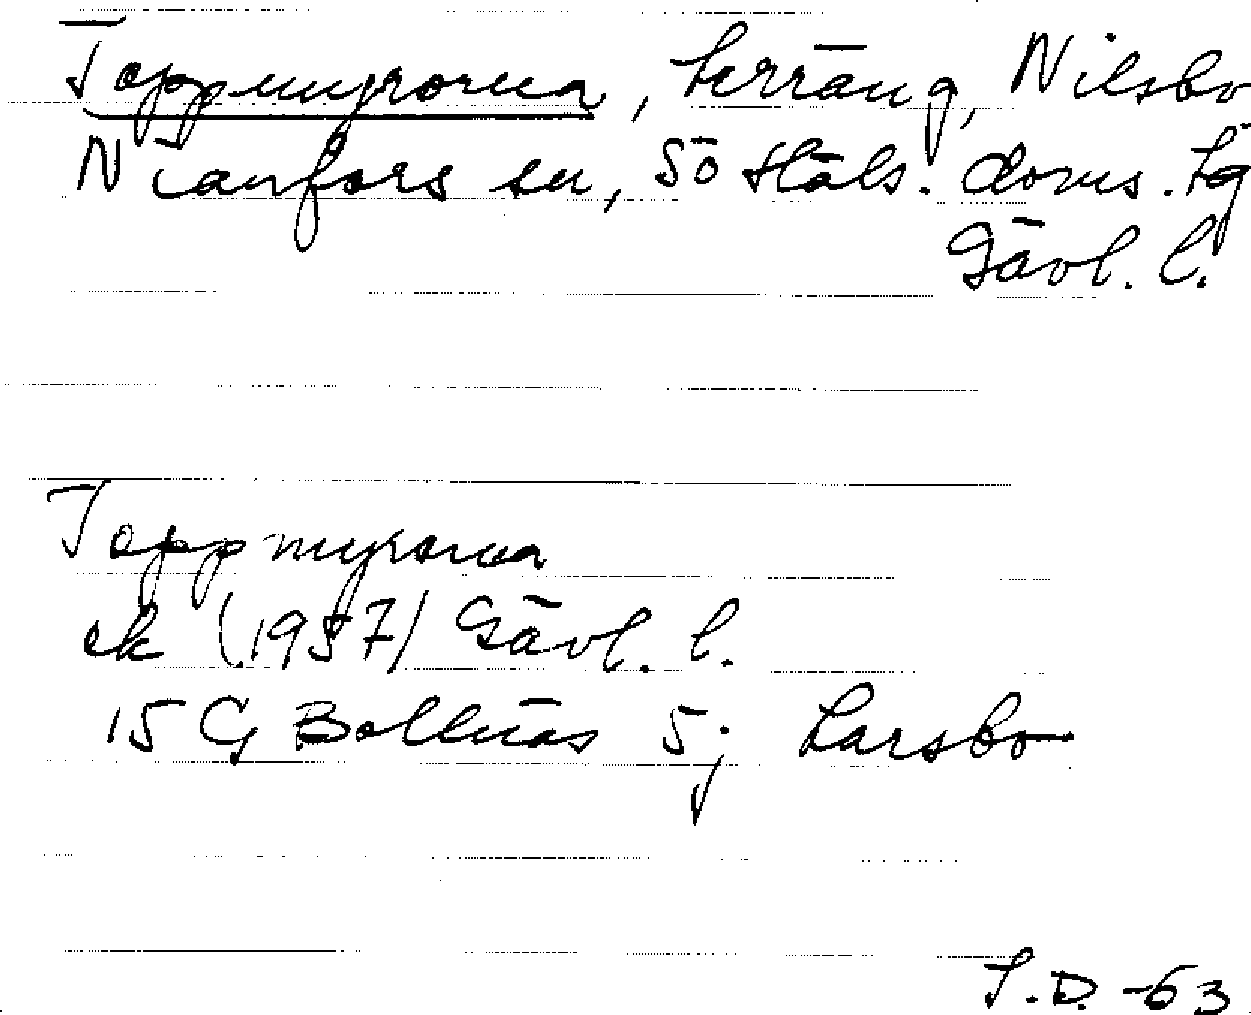 Toppmyrorna, terräng, Nilsbo
Nianfors sn, Sö Häls. doms. Lg
Gävl. l.
Toppmyrorna
ek (1957) Gävl. l.
15 G Bollnäs 5j Larsbo
S.D. -63